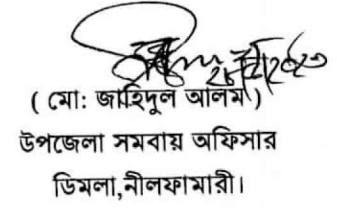 ( মো: জাহিদুল আলম )
উপজেলা সমবায় অফিসার
ডিমলা,নীলফামারী।